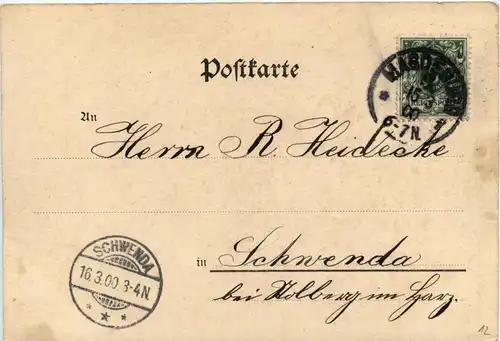 Postkarte
MAGDEBURG
15 3
00
6-7N.
An
Herrn R. Heidecke
in Schwenda
bei Stolberg im Harz.
SCHWENDA
16.3.00.3-4N.
12